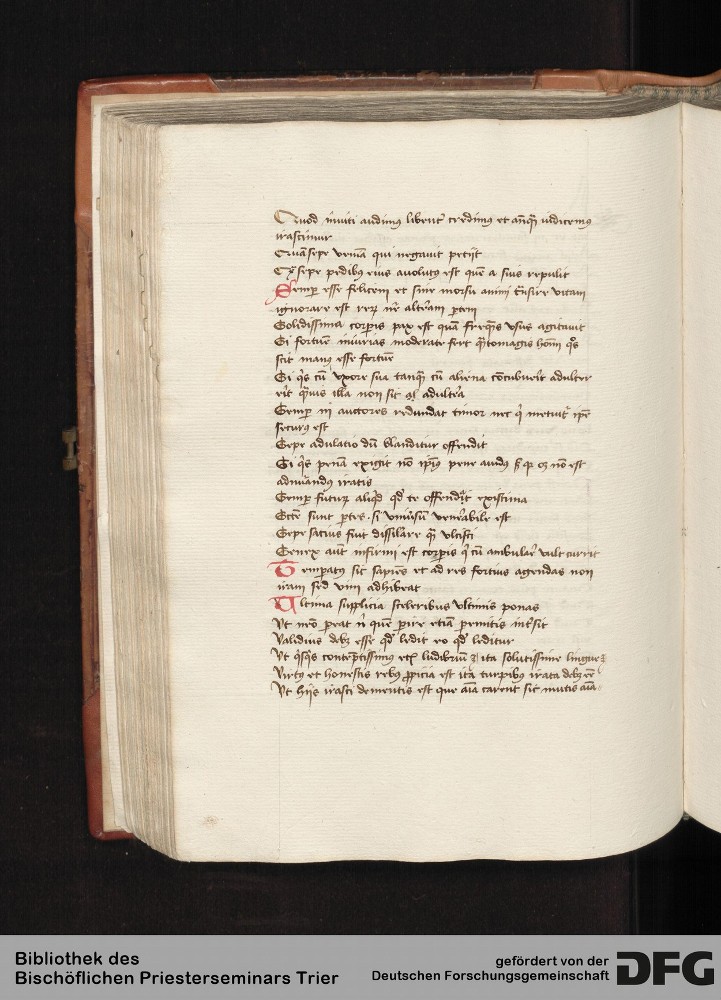 Quod inviti audimus libent' credimus et anqȝ iudicemus
irascimur
Quā sepe veniā qui negavit petijt
Qȝ sepe pedibus eius avolutus est quē a suis repulit
Semp esse felicem et sine morsu animi t̄nsire vitam
ignorare est rerȝ n̄re alteram ptem
Solidissima corpis pax est quā freqns usus agitavit
Si fortune iniurias moderate fert q̄ntomagis hom̄ q̄s
scit manus esse fortune
Si q̄s cū uxore sua tanqȝ cū aliena cōcubuerit adulter
erit q̄uis illa non sit adultera
Semp in auctores redundat timor nec q̄ metuitur ip̄e
securus est
Sepe adulatio dū blanditur offendit
Si q̄s penā exigit nō ip̄ius pene avidus sȝ qȝ oȝ nō est
adiuvandus iratis
Semp futurȝ aliqd qd te offendat existima
Scte sunt ptes si vniūsū venerabile est
Sepe satius fuit dissimlare qȝ ulcisci
Senex aut infirmi est corpis q̄ cū ambulare vult currit
Temperatus sit sapiēs et ad res fortius agendas non
iram sed vim adhibeat
Ultima supplicia sceleribus ultimis ponas
Ut nemo pereat n̄ quē perire etiā peuntis intersit
Validius debȝ esse qd ledit eo qd leditur
Ut q̄sqs contēptissimus et ludibriū ita solutissime lingue
Virtus et honestis rebus ppicia est ita turpibus irata debȝ eē
Ut hijs irasci dementis est que aīa carent sic mutis aīa
Bibliothek des
Bischöflichen Priesterseminars Trier
gefördert von der
Deutschen Forschungsgemeinschaft DFG